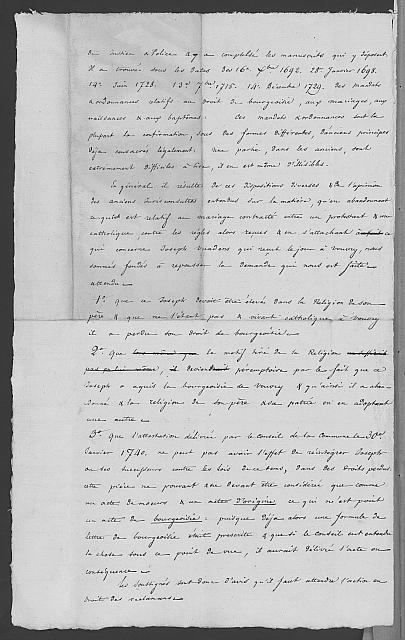 de justice & Police & y a compulsé les manuscrits qui y déposent.
il a trouvé sous les dates des 16e Xbre 1692. 28. Janvier 1698.
19e Juin 1728. 13e 7bre 1715. 14e Décembre 1729. des mandats
& ordonnances relatifs au droit de bourgeoisie, aux mariages, aux
naissances & aux baptêmes. Ces mandats & ordonnances sont la
plupart la confirmation, sous des formes différentes, d'anciens principes
déja consacrés légalement. Une partie, dans les anciens, sont
extrêmement difficiles à lire, il en est même d'illisibles.
En général il résulte de ces dispositions diverses & de l'opinion
des anciens jurisconsultes entendus sur la matière, qu'en abandonnant
ce qui est relatif au mariage contracté entre un protestant & une
catholique, contre les règles alors reçues & en s'attachant à
qui concerne Joseph qui reçut le jour à Vouvry, nous
sommes fondés à repousser la demande qui nous est faite
attendu
1o que ce Joseph devoit être élevé dans la Religion de son
père & que ne l'étant pas & vivant catholique à Vouvry
il a perdu son droit de bourgeoisie.
2o que le motif tiré de la Religion
devient péremptoire par le fait que ce
Joseph a aquis la bourgeoisie de Vouvry & qu'ainsi il a aban
donné & la religion de son père & sa patrie en en adoptant
une autre.
3o que l'attestation délivrée par le Conseil de la Commune le 30e
Janvier 1740. ne peut pas avoir l'effet de réintégrer Joseph
ou ses successeurs contre les lois de ce tems, dans des droits perdus
cette pièce ne pouvant & ne devant être considérée que comme
un acte de moeurs & un acte d'origine ce qui n'est point
un acte de bourgeoisie: puisque déja alors une formule de
lettre de bourgeoisie était prescrite & que si le Conseil eut entendu
la chose sous ce point de vue, il aurait délivré l'acte en
conséquence.
Les soussignés sont donc d'avis qu'il faut attendre l'action en
droit des reclamans